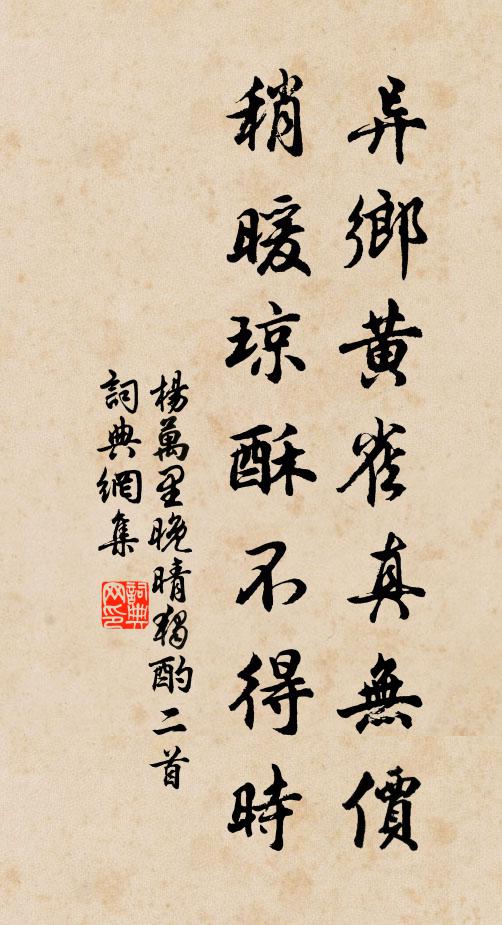 异鄉黃雀真無價
稍暖琼酥不得時
楊萬里晚晴獨酌二首
詞典網集
詞典
网印